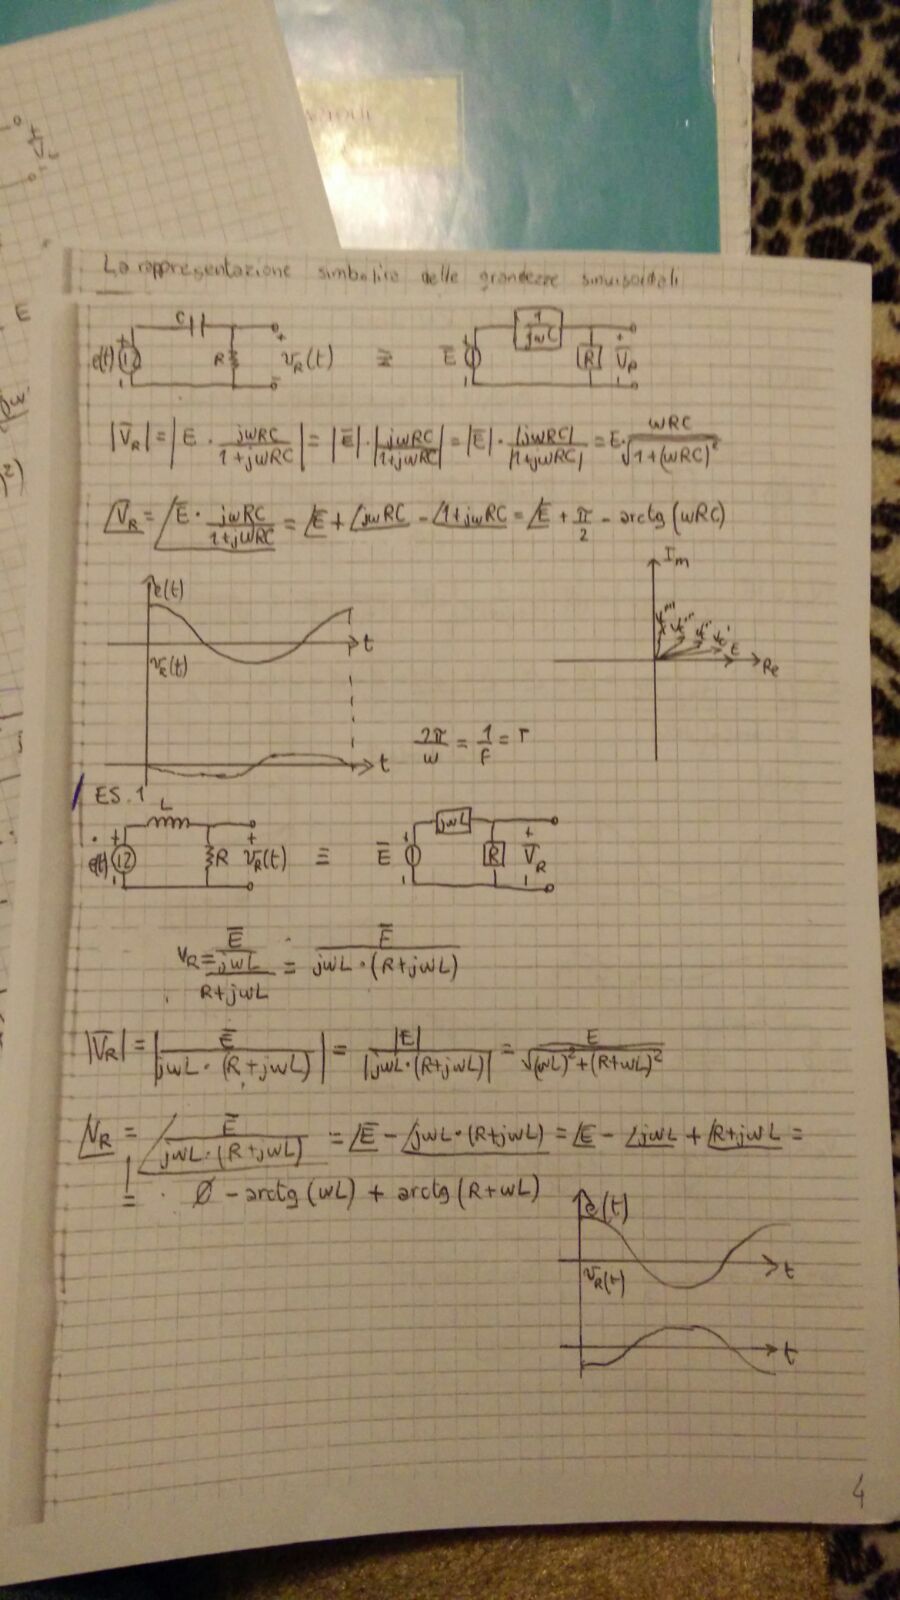 La rappresentazione simbolica delle grandezze sinusoidali
C
e(t) + R + v_R(t) ≅ Ē + 1/jωC R + V̄_R
|V̄_R| = |Ē · jωRC/(1+jωRC)| = |Ē| · |jωRC/(1+jωRC)| = |Ē| · |jωRC|/|1+jωRC| = E · ωRC/√(1+(ωRC)²)
∠V̄_R = ∠(Ē · jωRC/(1+jωRC)) = ∠Ē + ∠jωRC - ∠1+jωRC = ∠Ē + π/2 - arctg(ωRC)
e(t)
t
v_R(t)
t
Im
Re
2π/ω = 1/F = T
ES. 1
L
e(t) + R + v_R(t) ≡ Ē + jωL R + V̄_R
V_R = (Ē/jωL)/(R+jωL) = Ē/(jωL · (R+jωL))
|V̄_R| = |Ē/(jωL · (R+jωL))| = |E|/|jωL · (R+jωL)| = E/√((ωL)²+(R+ωL)²)
∠V_R = ∠(Ē/(jωL · (R+jωL))) = ∠Ē - ∠jωL · (R+jωL) = ∠E - ∠jωL + ∠R+jωL =
= ∅ - arctg(ωL) + arctg(R+ωL)
e(t)
t
v_R(t)
t
4